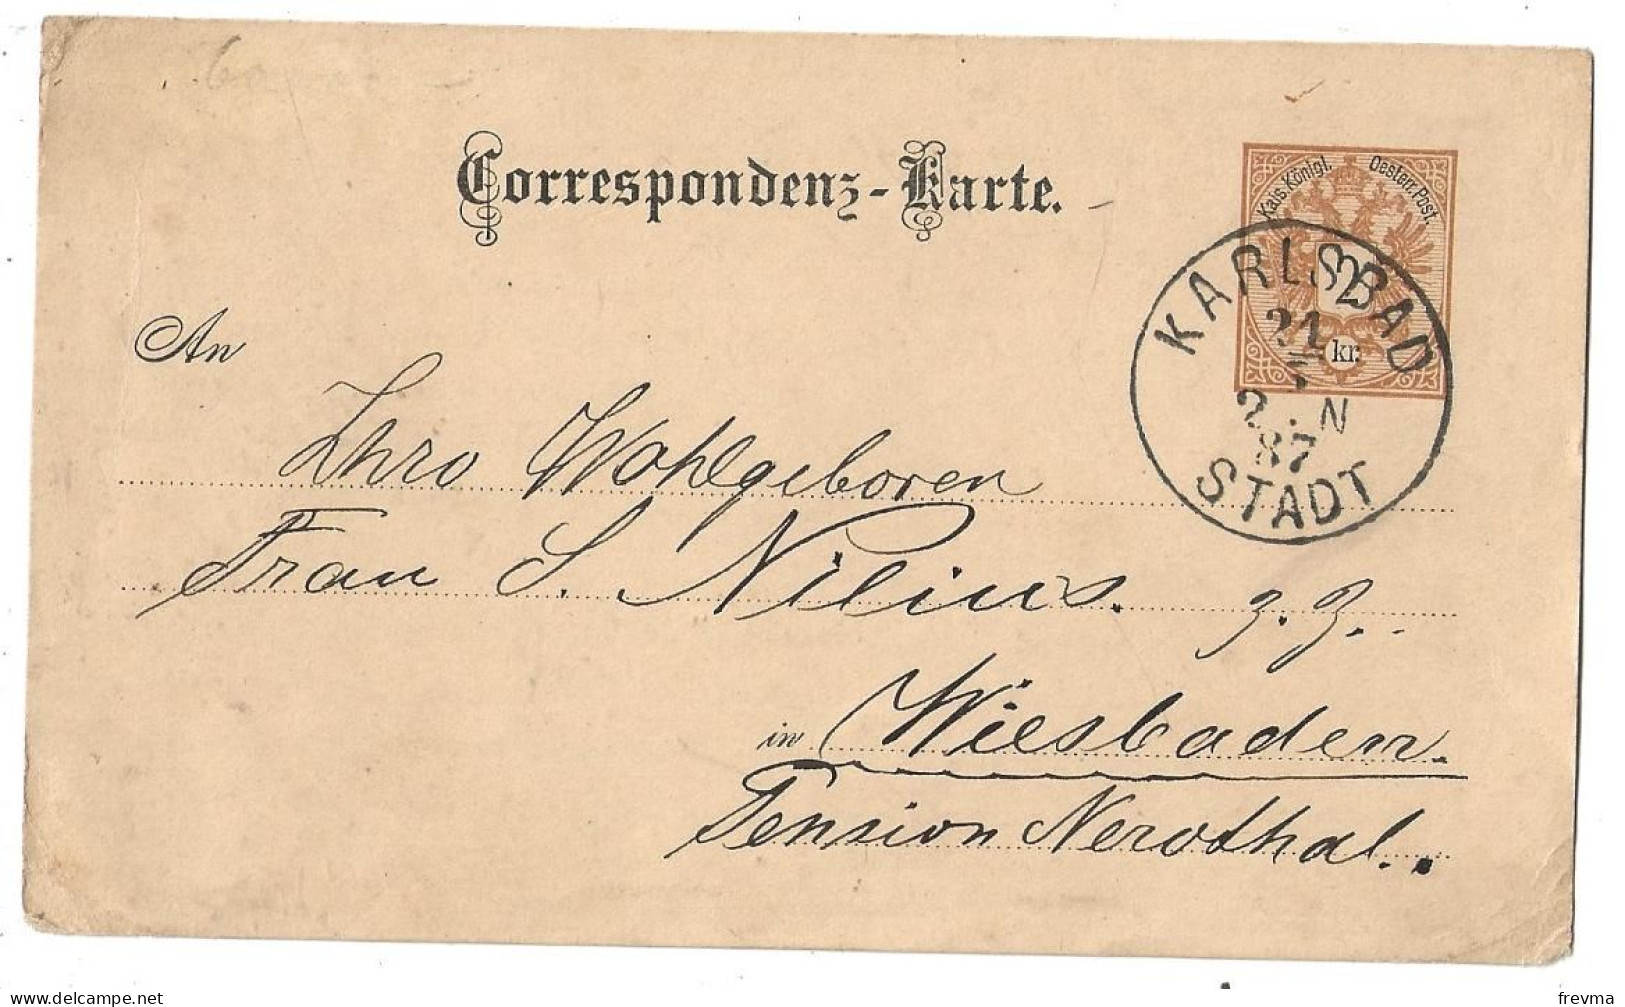 Correspondenz-Karte.
Kais. Königl. Oesterr. Post.
2
kr.
KARLSBAD
21
N
87
STADT
An
Ihro Wohlgeboren
Frau S. Nilius. z. Z.
in Wiesbaden.
Pension Nerothal.
frevma